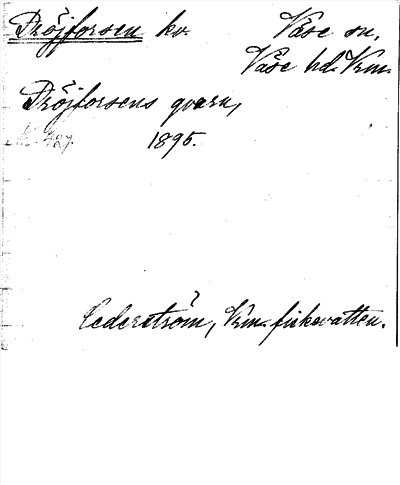 Dröjforsen kv. Väse sn.
Väse hd. Vrm.
Dröjforsens qvarn,
1895.
Cederström, Vrm. fiskevatten.